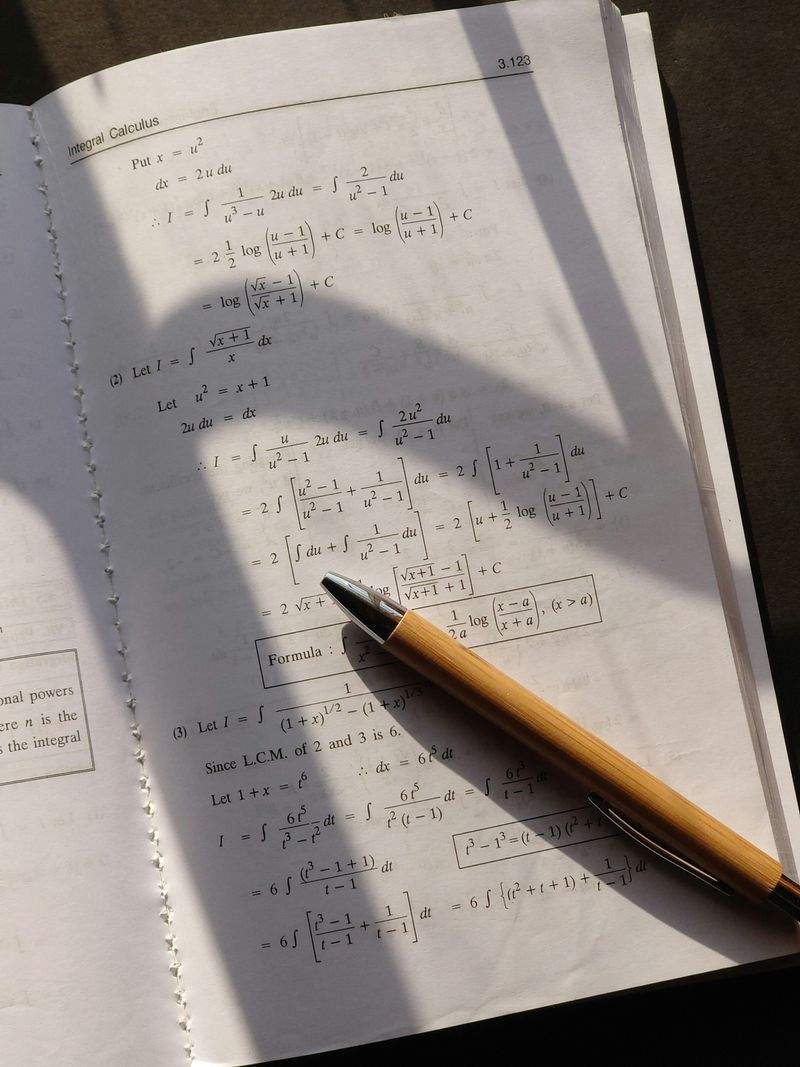 3.123
Integral Calculus
Put x = u²
dx = 2u du
∴ I = ∫ 1/(u³ − u) 2u du = ∫ 2/(u² − 1) du
= 2 1/2 log ((u − 1)/(u + 1)) + C = log ((u − 1)/(u + 1)) + C
= log ((√x − 1)/(√x + 1)) + C
(2) Let I = ∫ √(x + 1)/x dx
Let u² = x + 1
2u du = dx
∴ I = ∫ u/(u² − 1) 2u du = ∫ 2u²/(u² − 1) du
= 2 ∫ [(u² − 1)/(u² − 1) + 1/(u² − 1)] du = 2 ∫ [1 + 1/(u² − 1)] du
= 2 [∫ du + ∫ 1/(u² − 1) du] = 2 [u + 1/2 log ((u − 1)/(u + 1))] + C
= 2 √x + log [(√x+1 − 1)/(√x+1 + 1)] + C
Formula : ∫ 1/2a log ((x − a)/(x + a)), (x > a)
(3) Let I = ∫ 1/((1 + x)^1/2 − (1 + x)^1/3)
Since L.C.M. of 2 and 3 is 6.
Let 1 + x = t⁶ ∴ dx = 6t⁵ dt
I = ∫ 6t⁵/(t³ − t²) dt = ∫ 6t⁵/(t² (t − 1)) dt = ∫ 6t³/(t − 1) dt
t³ − 1³ = (t − 1) (t² +
= 6 ∫ (t³ − 1 + 1)/(t − 1) dt
= 6 ∫ [(t³ − 1)/(t − 1) + 1/(t − 1)] dt = 6 ∫ {(t² + t + 1) + 1/(t − 1)} dt
powers
n is the
the integral